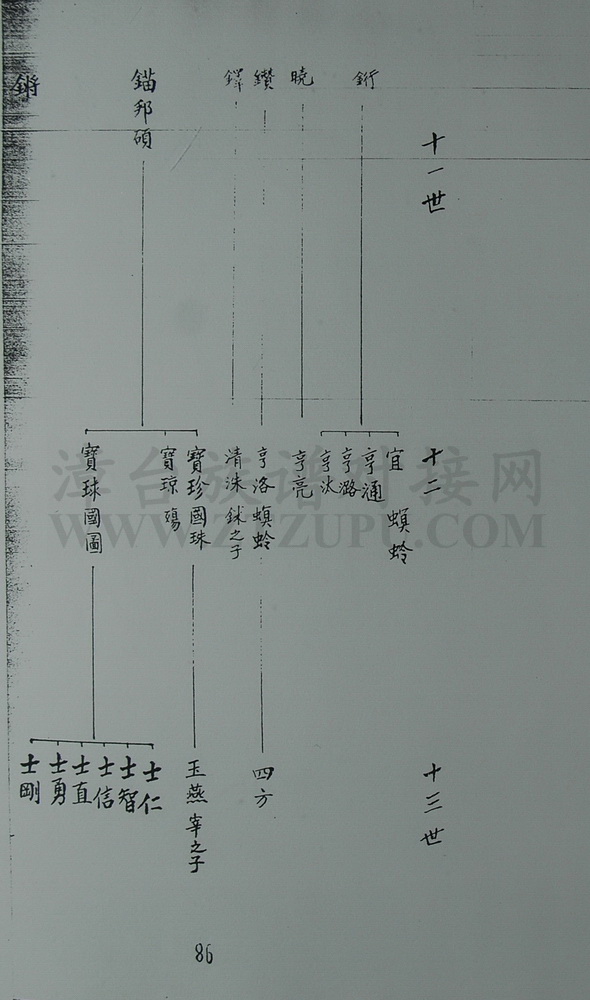 十一世
銜
曉
鑽
鐸
錨邦碩
鏘
十二
宜 螟蛉
亨通
亨潞
亨汰
亨亮
亨洛螟蛉
清洙 銶之子
寶珍國珠
寶琼殤
寶球國圖
十三世
四方
玉燕 宰之子
士仁
士智
士信
士直
士勇
士剛
86
漳台族谱对接网
WWW.ZTZUPU.COM